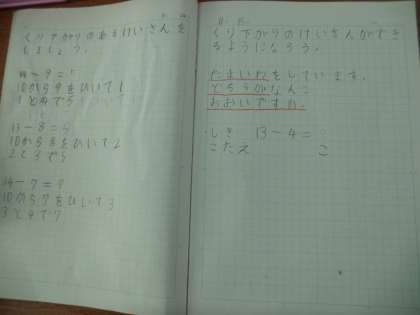 くり下がりのあるけいさんを
しましょう。
14-9=5
10から9をひいて1
1と4で5
13-8=5
10から8をひいて2
2と3で5
14-7=7
10から7をひいて3
3と4で7
くり下がりのけいさんができ
るようになろう。
たまいれをしています。
どちらがなんこ
おおいですか。
しき 13-4=
こたえ こ